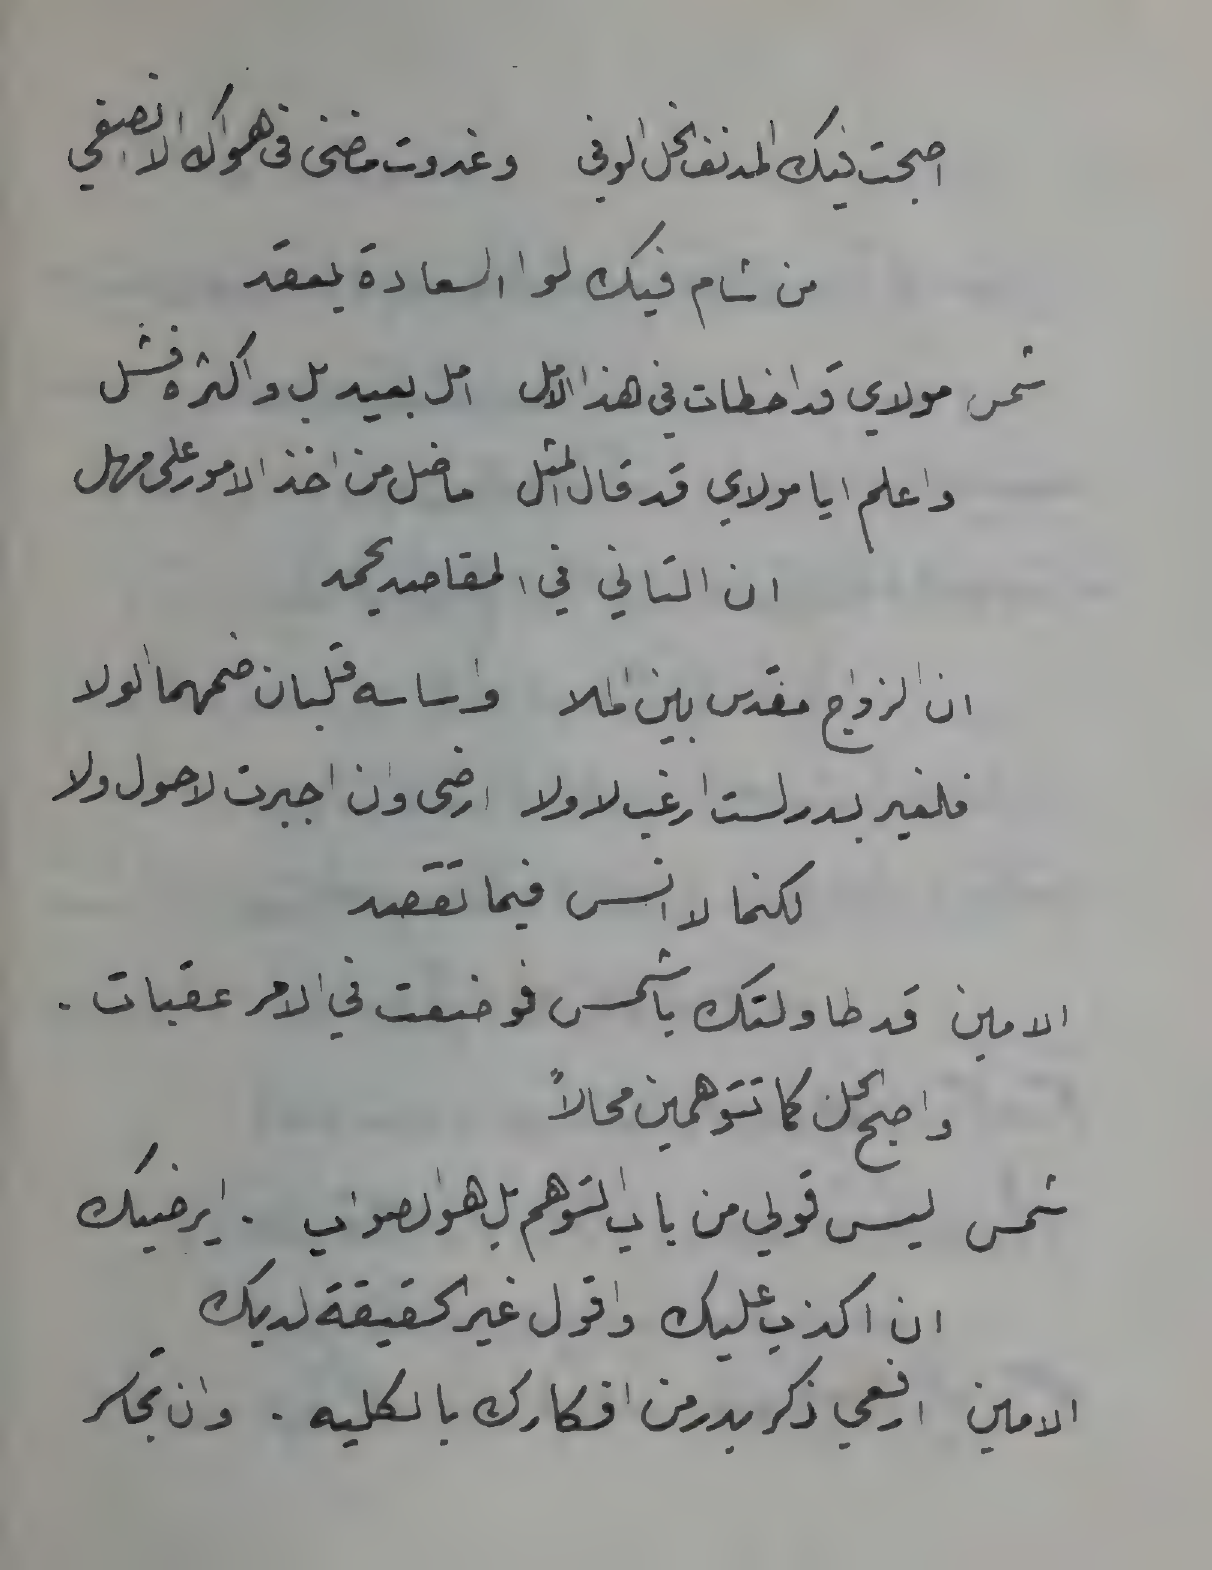 اصبحت فيك المدنف الخل الوفي وغدوت مضنى في هواك الا انصفي
من شام فيك لوا السعادة يعقد
شمس مولاي قد اخطات في هذا الامل امل بعيد بل واكثره فشل
واعلم ايا مولاي قد قال المثل ماضل من اخذ الامور على مهل
ان التاني في المقاصد يحمد
ان الزواج مقدس بين الملا واساسه قلبان ضمهما الولا
فلغير بدر لست ارغب لا ولا ارضى وان اجبرت لاحول ولا
لكنما لا انس فيما تقصد
الامين قد طاولتك ياشمس فوضعت في الامر عقبات .
واصبح الحل كما تتوهمين محالاً
شمس ليس قولي من باب التوهم بل هو الصواب . ايرضيك
ان اكذب عليك واقول غير الحقيقة لديك
الامين ارفعي ذكر بدر من افكارك بالكليه . وان